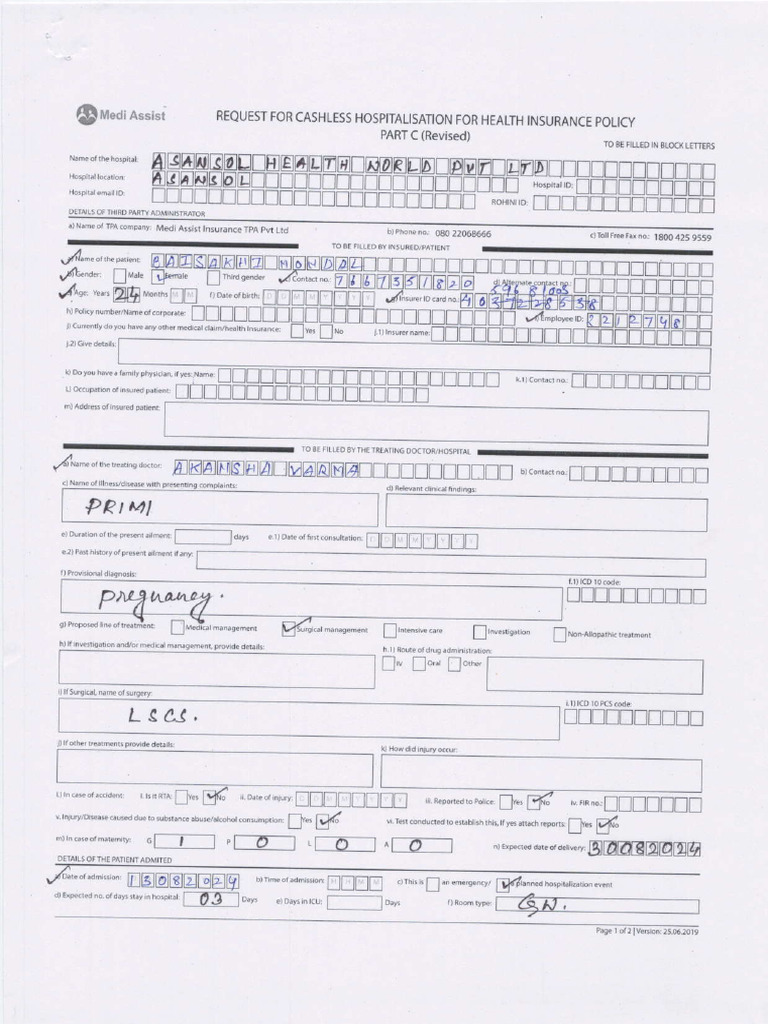 Medi Assist
REQUEST FOR CASHLESS HOSPITALISATION FOR HEALTH INSURANCE POLICY
PART C (Revised)
TO BE FILLED IN BLOCK LETTERS
Name of the hospital: ASANSOL HEALTH WORLD PVT LTD
Hospital location: ASANSOL Hospital ID:
Hospital email ID: ROHINI ID:
DETAILS OF THIRD PARTY ADMINISTRATOR
a) Name of TPA company: Medi Assist Insurance TPA Pvt Ltd b) Phone no.: 080 22068666 c) Toll Free Fax no.: 1800 425 9559
TO BE FILLED BY INSURED/PATIENT
a) Name of the patient: BAISAKHI MONDAL
b) Gender: Male Female Third gender c) Contact no.: 7667351820 d) Alternate contact no.:
e) Age: Years 24 Months M M f) Date of birth: D D M M Y Y Y Y g) Insurer ID card no.: 4037228538
h) Policy number/Name of corporate: i) Employee ID: 2212748
j) Currently do you have any other medical claim/health Insurance: Yes No j.1) Insurer name:
j.2) Give details:
k) Do you have a family physician, if yes: Name: k.1) Contact no.:
L) Occupation of insured patient:
m) Address of insured patient:
TO BE FILLED BY THE TREATING DOCTOR/HOSPITAL
a) Name of the treating doctor: AKANSHA VARMA b) Contact no.:
c) Name of illness/disease with presenting complaints: d) Relevant clinical findings:
PRIMI
e) Duration of the present ailment: days e.1) Date of first consultation: D D M M Y Y Y Y
e.2) Past history of present ailment if any:
f) Provisional diagnosis: f.1) ICD 10 code:
Pregnancy.
g) Proposed line of treatment: Medical management Surgical management Intensive care Investigation Non-Allopathic treatment
h) If investigation and/or medical management, provide details: h.1) Route of drug administration:
IV Oral Other
i) If Surgical, name of surgery: i.1) ICD 10 PCS code:
LSCS.
j) If other treatments provide details: k) How did injury occur:
L) In case of accident: i. Is it RTA: Yes No ii. Date of injury: D D M M Y Y Y Y iii. Reported to Police: Yes No iv. FIR no.:
v. Injury/Disease caused due to substance abuse/alcohol consumption: Yes No vi. Test conducted to establish this, If yes attach reports: Yes No
m) In case of maternity: G 1 P 0 L 0 A 0 n) Expected date of delivery: 30082024
DETAILS OF THE PATIENT ADMITED
a) Date of admission: 13082024 b) Time of admission: H H M M c) This is an emergency/ a planned hospitalization event
d) Expected no. of days stay in hospital: 03 Days e) Days in ICU: Days f) Room type: GW.
Page 1 of 2 | Version: 25.06.2019